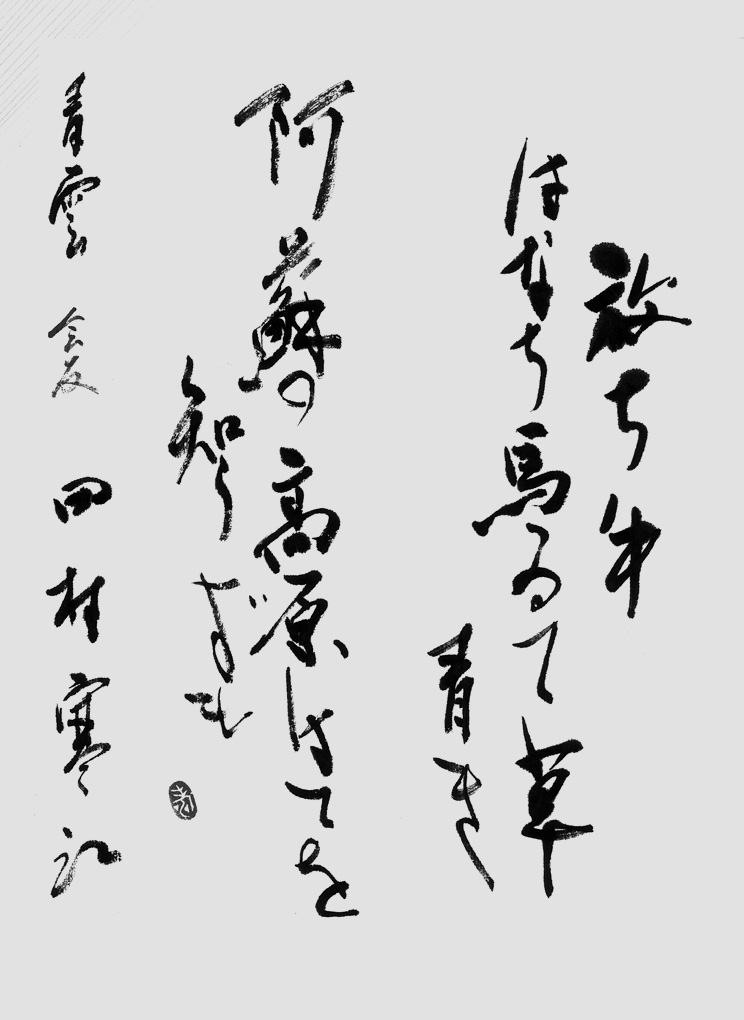 放ち牛
はなち馬ゐて草
青き
阿蘇の高原はてを
知らずも
青雲 会友 田村寒江